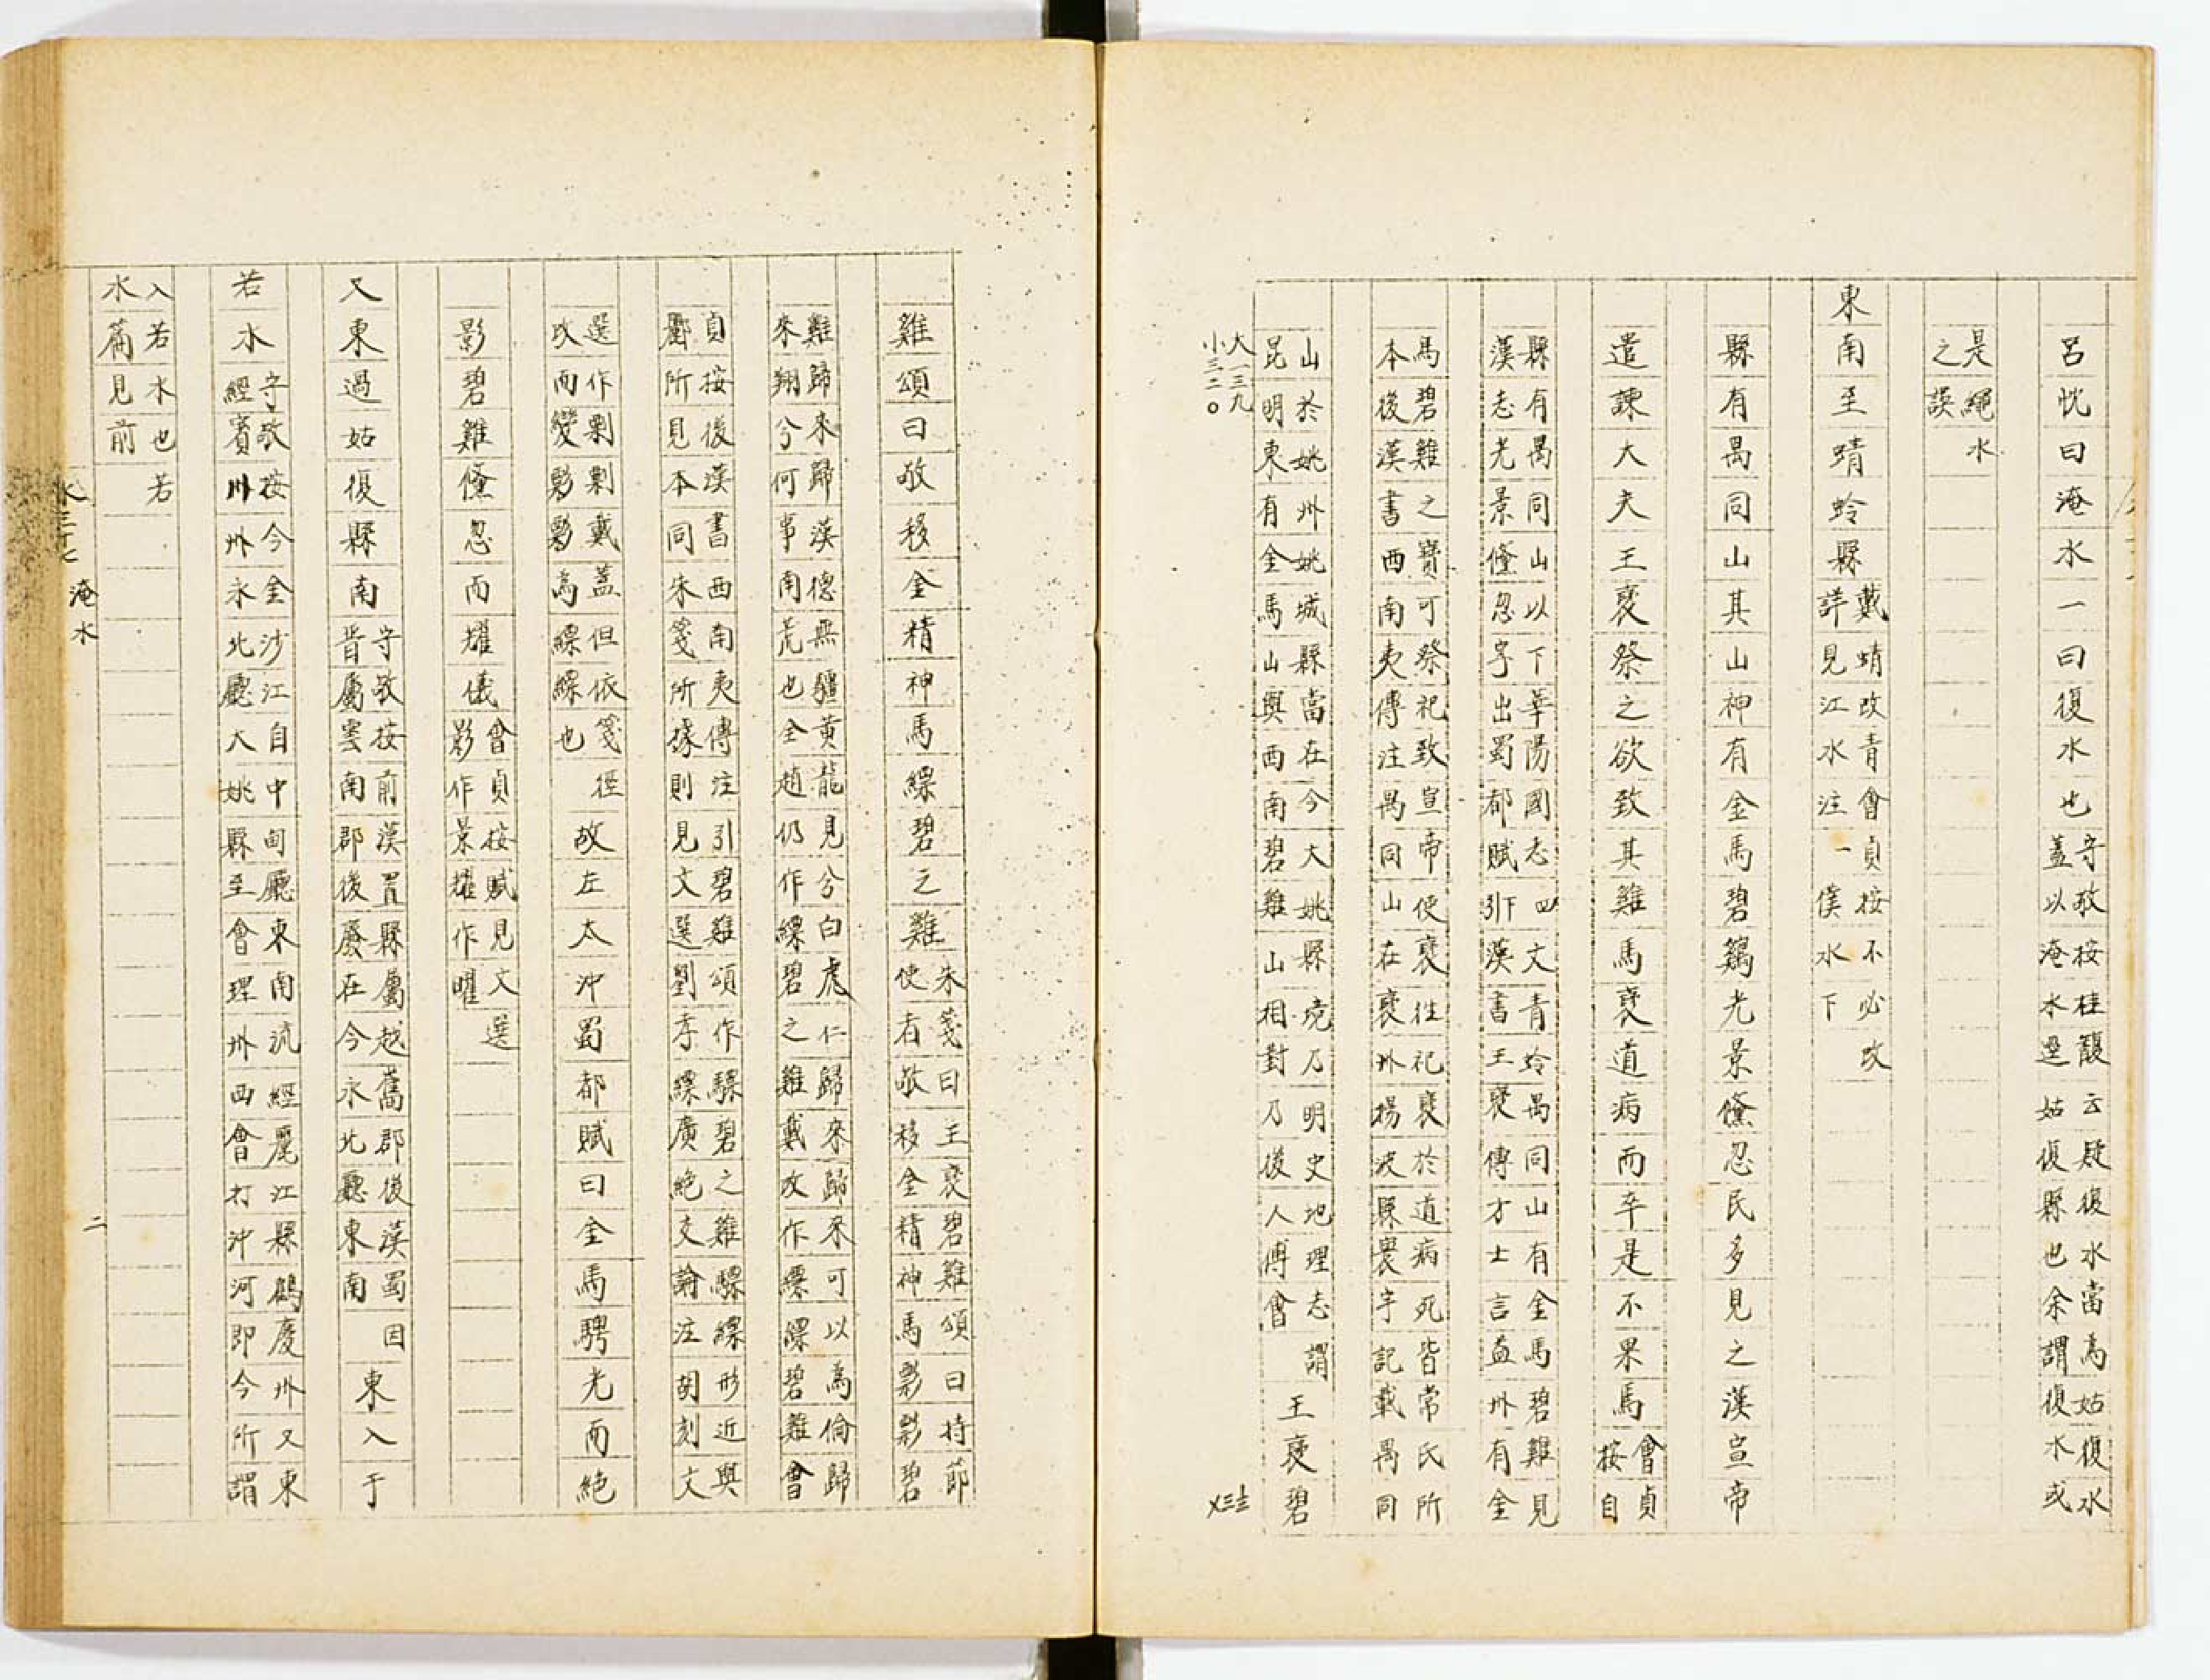 呂忱曰淹水一曰復水也守敬按桂馥云疑復水當為姑復水
蓋以淹水逕姑復縣也余謂復水或
是繩水
之誤
東南至蜻蛉縣戴蜻改青會貞按不必改
詳見江水注一僕水下
縣有禺同山其山神有金馬碧鷄光景儵忽民多見之漢宣帝
遣諫大夫王褒祭之欲致其雞馬褒道病而卒是不果焉會貞
按自
縣有禺同山以下華陽國志四文青蛉禺同山有金馬碧雞見
漢志光景儵忽字出蜀都賦引下漢書王褒傳才士言益州有金
馬碧雞之寶可祭祀致宣帝使褒往祀褒於道病死皆常氏所
本後漢書西南夷傳注禺同山在褒州揚波縣寰宇記載禺同
山於姚州姚城縣當在今大姚縣境乃明史地理志謂
昆明東有金馬山與西南碧雞山相對乃後人傅會
王褒碧
大一三九
小三二〇
雞頌曰敬移金精神馬縹碧之雞朱箋曰王褒碧雞頌曰持節
使者敬移金精神馬影影碧
雞歸來歸漢德無疆黃龍見兮白虎仁歸來歸來可以為倫歸
來翔兮何事南荒也全趙仍作縹碧之雞戴改作縹縹碧雞會
貞按後漢書西南夷傳注引碧雞頌作驃碧之雞驃縹形近與
酈所見本同朱箋所據則見文選劉孝標廣絕交論注胡刻文
選作剽剽戴蓋但依箋
改而變影影為縹縹也
徑故左太沖蜀都賦曰金馬騁光而絕
影碧雞儵忽而耀儀會貞按賦見文選
影作景耀作曜
又東過姑復縣南守敬按前漢置縣屬越嶲郡後漢蜀因
晋屬雲南郡後廢在今永北廳東南
東入于
若水守敬按今金沙江自中甸廳東南流經麗江縣鶴慶州又東
經賓川州永北廳大姚縣至會理州西會打沖河即今所謂
入若水也若
水篇見前
水三十七
淹水
二